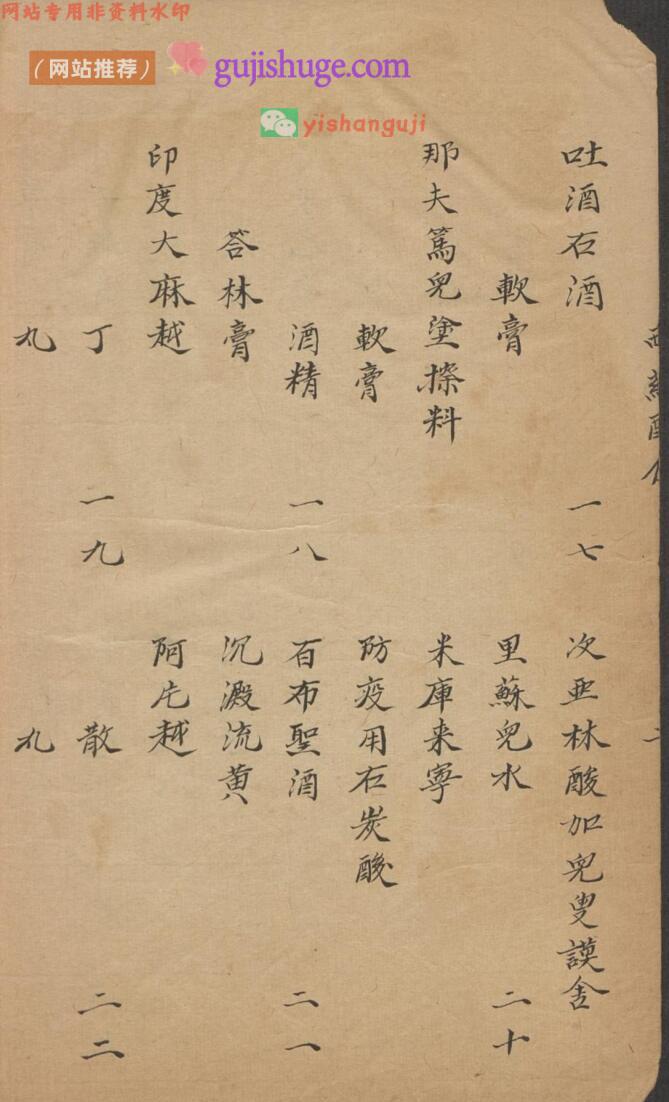 网站专用非资料水印
（网站推荐） gujishuge.com
yishanguji
吐酒石酒
軟膏 一七
那夫篤兒塗擦料
軟膏
酒精 一八
答林膏
印度大麻越
丁 一九
丸
次亜林酸加兒叟謨舎
里蘇兒水 二十
米庫来寧
防疫用石炭酸
百布聖酒 二一
沉澱流黄
阿片越
散 二二
丸